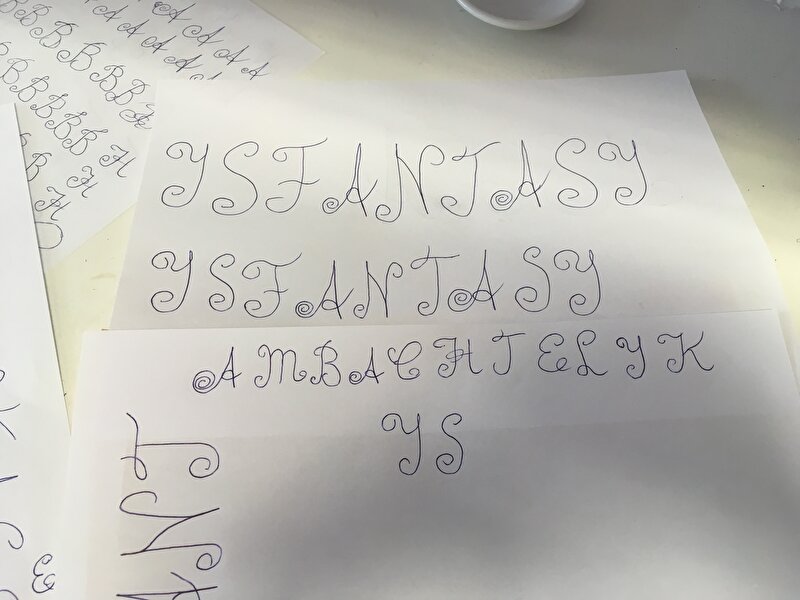 YSFANTASY
YSFANTASY
AMBACHTELYK
YS
ANT
A A A A A
B B B B B
B B B B
H
H
H